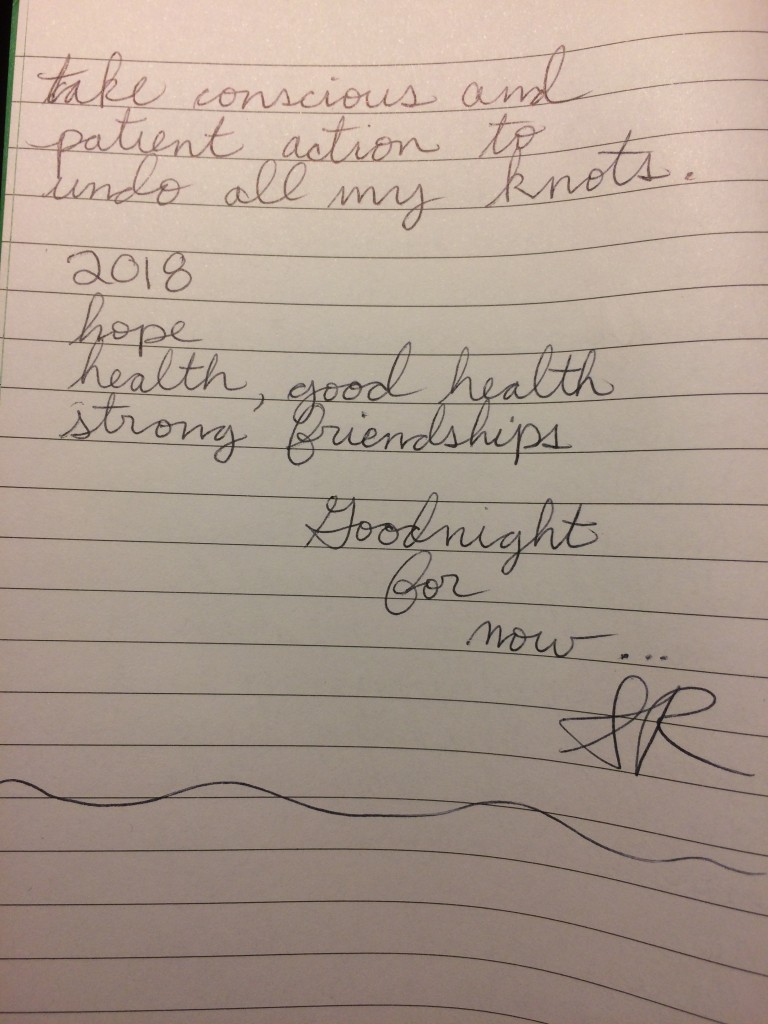 take conscious and
patient action to
undo all my knots.
2018
hope
health, good health
strong friendships
Goodnight
for
now...
SR